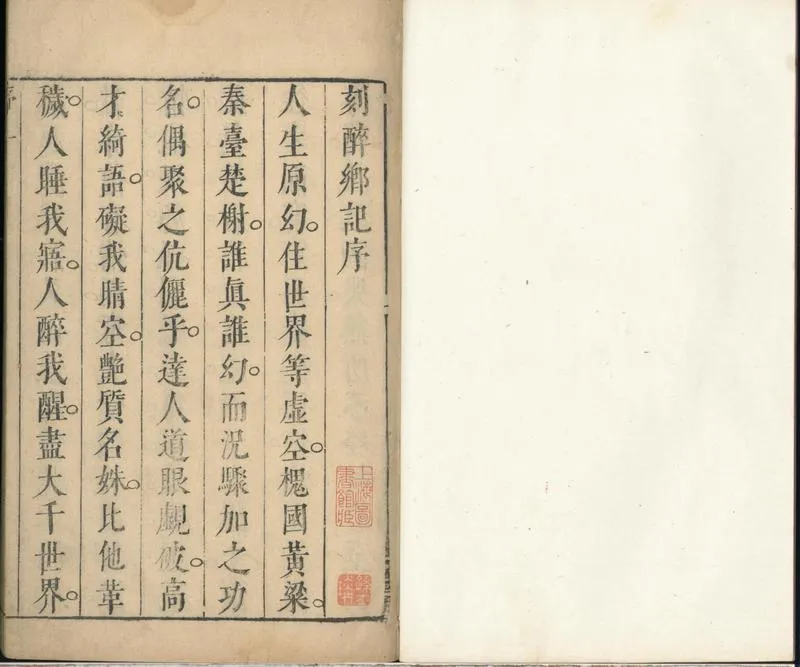 刻醉鄉記序
人生原幻。住世界等虛空。槐國黃粱。
秦臺楚榭。誰眞誰幻。而況驟加之功
名。偶聚之伉儷乎。達人道眼覷破。高
才綺語。礙我晴空。艷質名姝。比他革
穢。人睡我寤。人醉我醒。盡大千世界。
上海圖書館藏